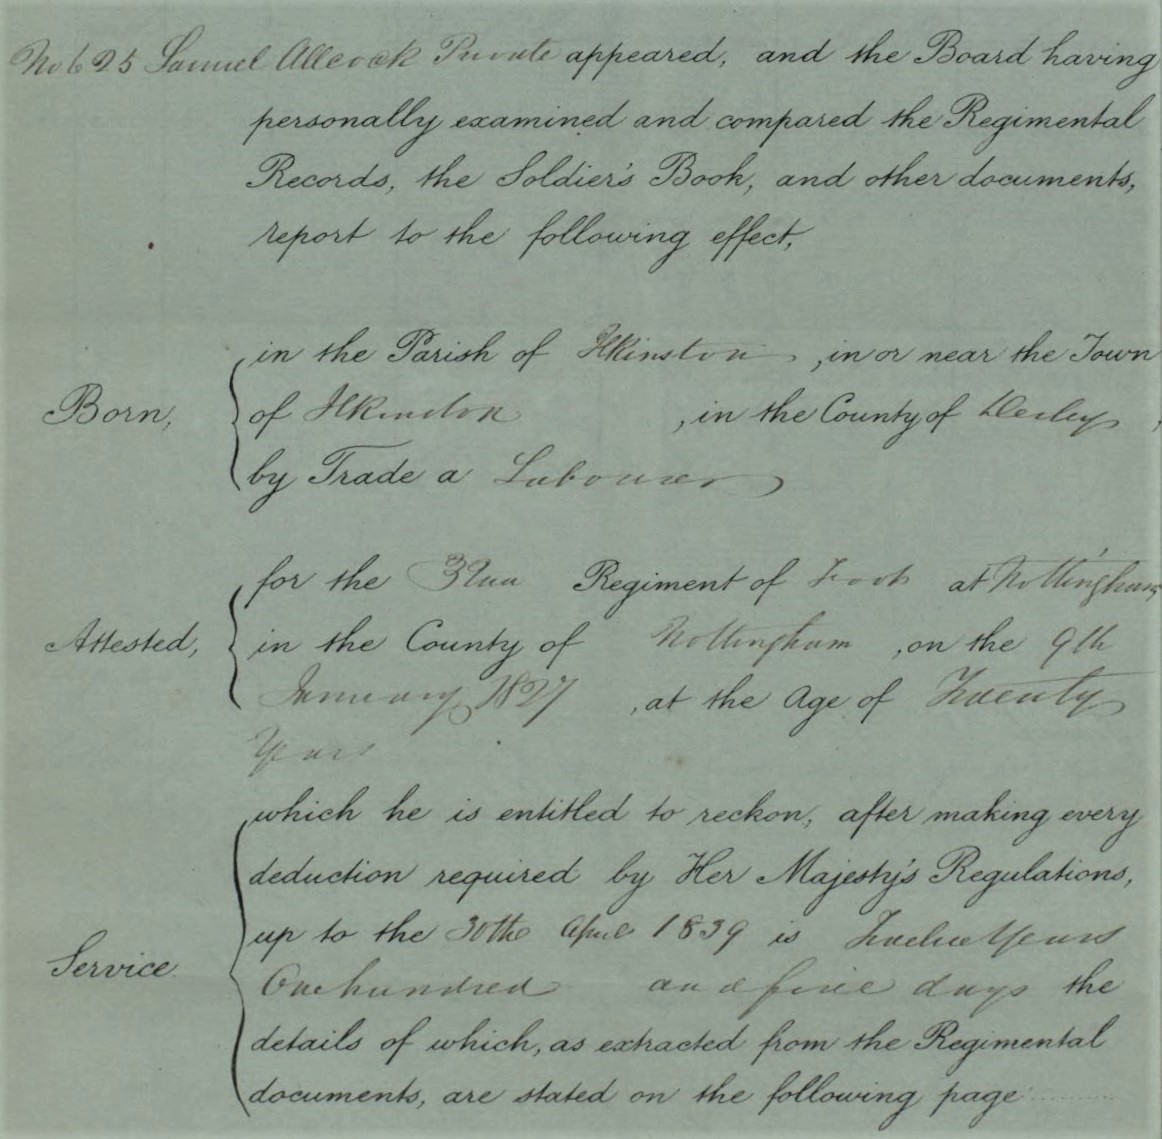 No 625 Samuel Allcock Private appeared, and the Board having
personally examined and compared the Regimental
Records, the Soldier's Book, and other documents,
report to the following effect,
in the Parish of Ilkinston, in or near the Town
Born, of Ilkinston, in the County of Derby,
by Trade a Labourer
for the 32nd Regiment of Foot at Nottingham,
Attested, in the County of Nottingham, on the 9th
January 1827, at the Age of Twenty
Years
which he is entitled to reckon, after making every
deduction required by Her Majesty's Regulations,
up to the 30th April 1839 is Twelve Years
Service One hundred and five days the
details of which, as extracted from the Regimental
documents, are stated on the following page